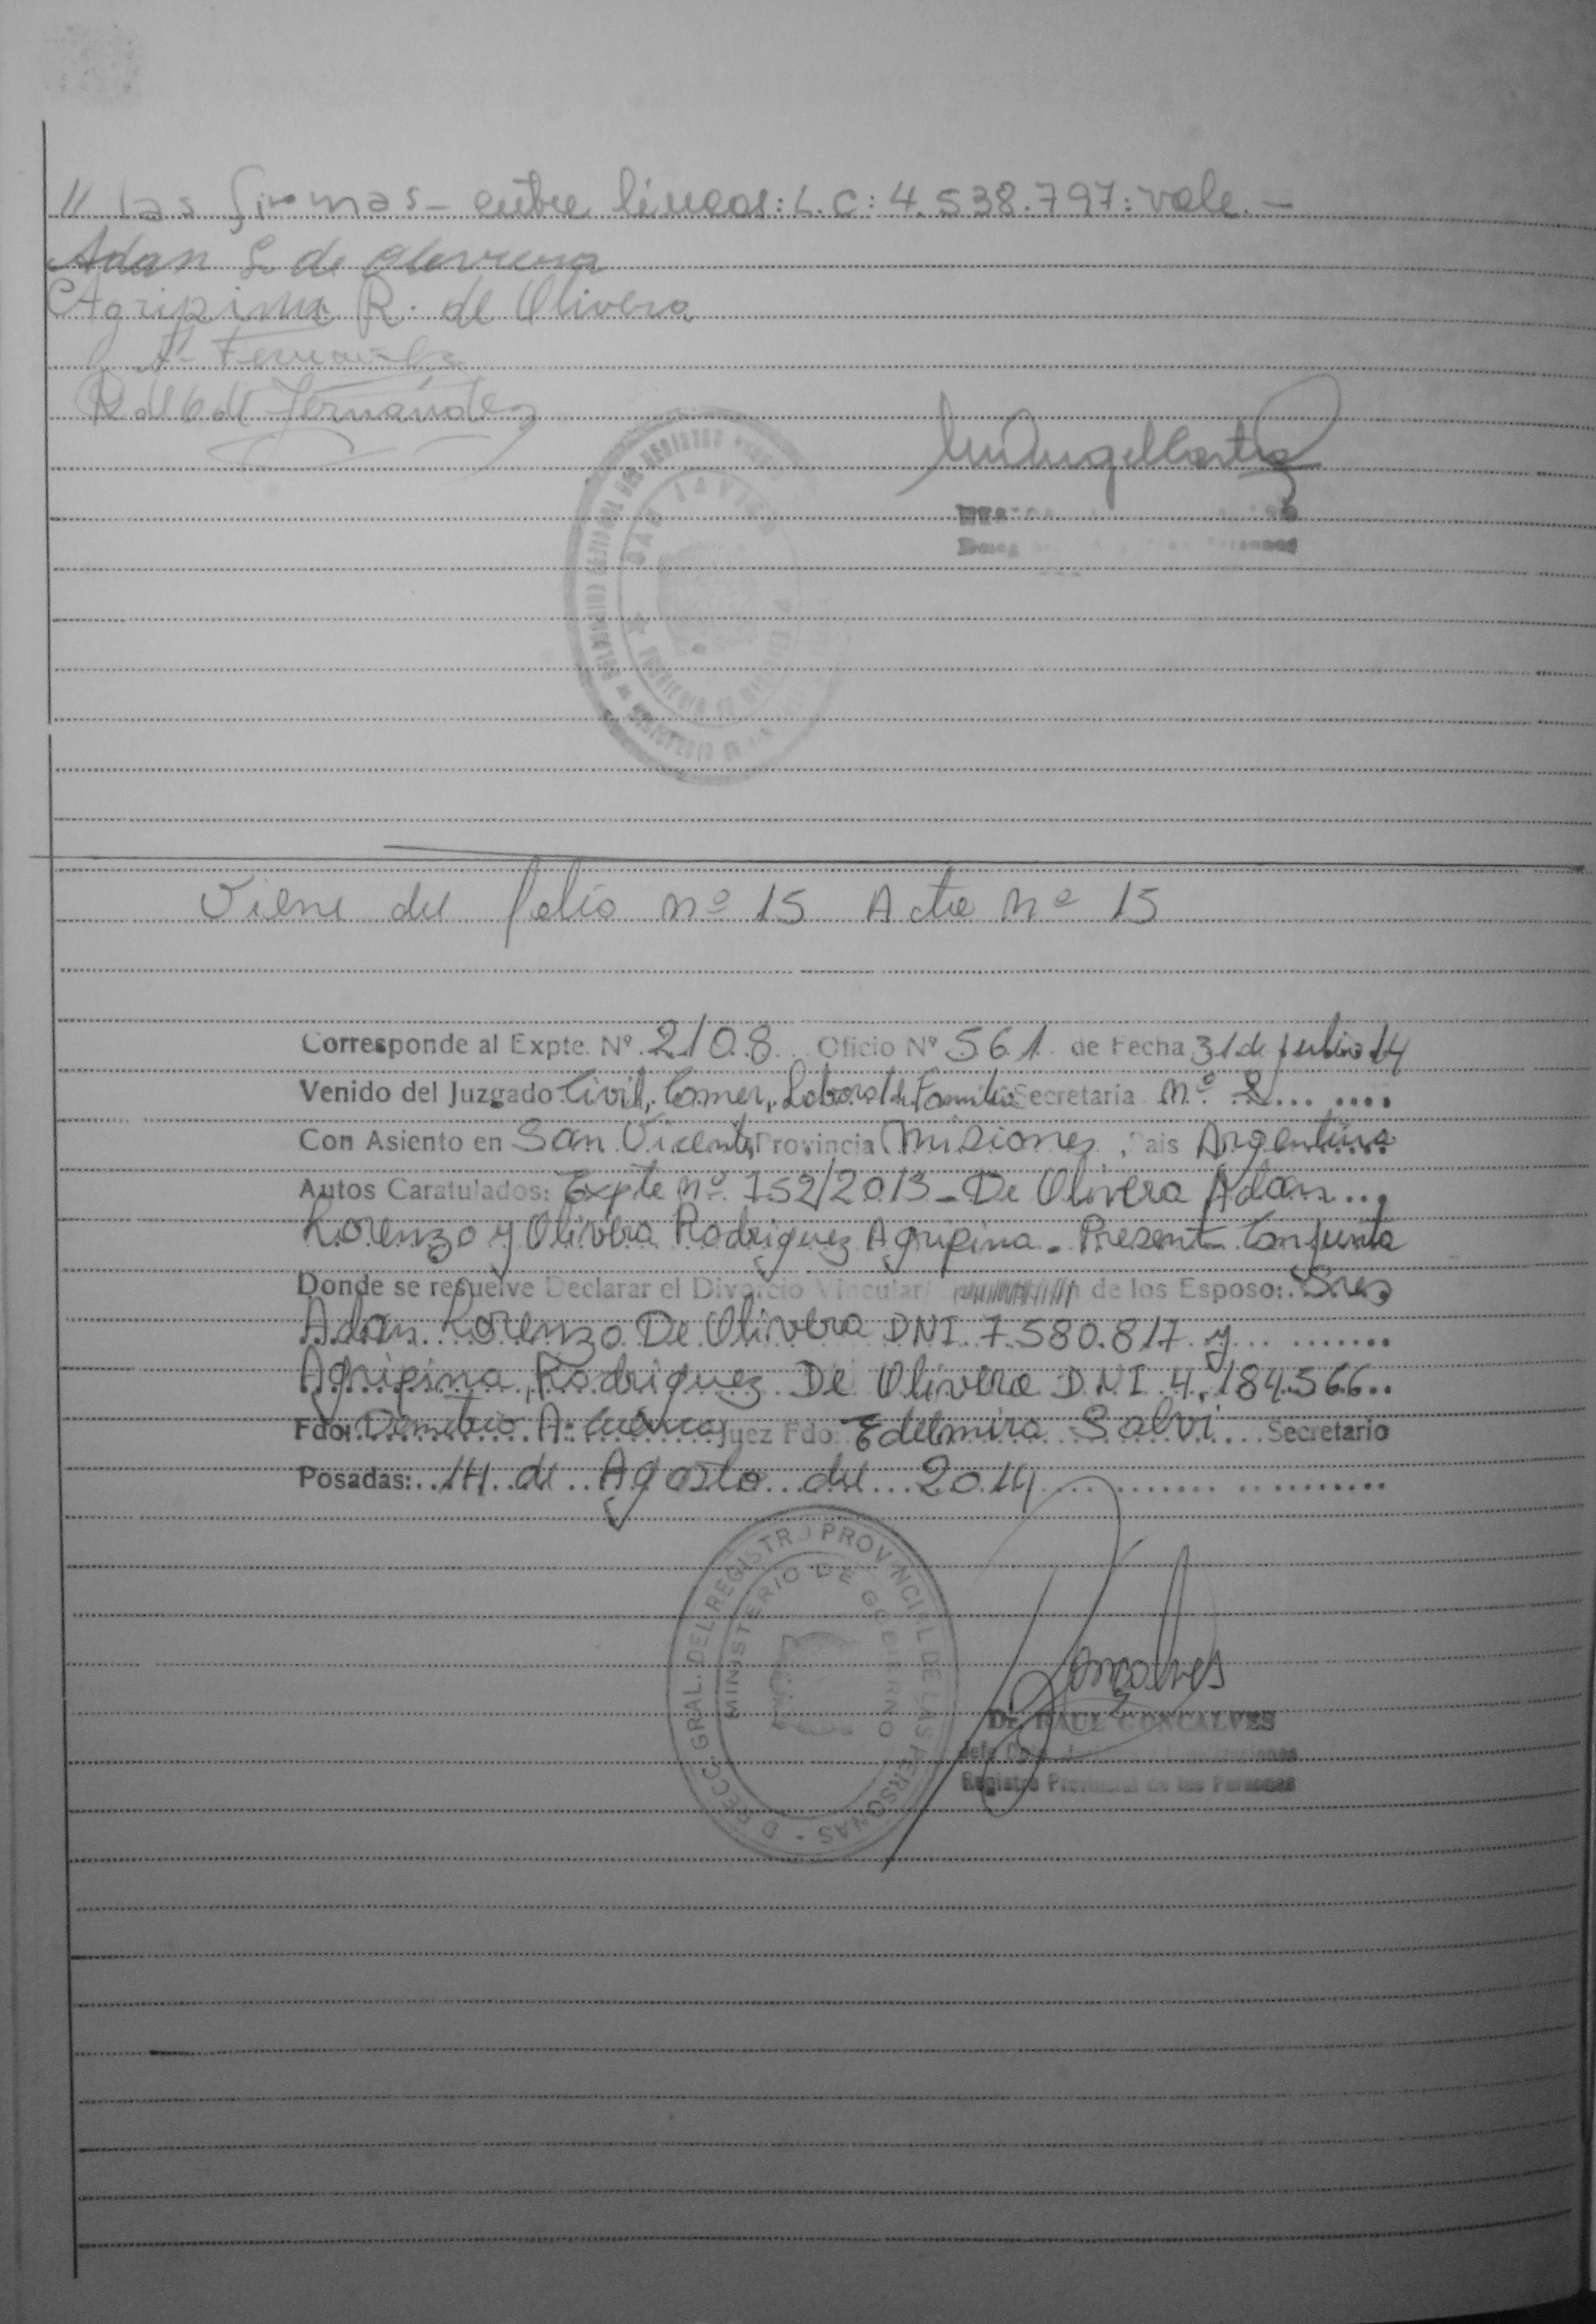 // las firmas - entre líneas: L.C: 4.538.797: vale. -
Adan L de
Agripina R. de Olivera
A. Fernandez
R de O de Fernández
SAN JAVIER
Viene del folio nº 15 Acta nº 15
Corresponde al Expte. Nº 2108 Oficio Nº 561 de Fecha 31 de julio 14
Venido del Juzgado Civil, Comer, Laboral de Familia Secretaría nº 2
Con Asiento en San Vicente Provincia Misiones, Pais Argentina
Autos Caratulados: Expte nº 152/2013 - De Olivera Adan
Lorenzo y Olivera Rodriguez Agripina. Present Conjunta
Donde se resuelve Declarar el Divorcio Vincular de los Esposo: Sres
Adan Lorenzo De Olivera DNI 7.580.817 y
Agripina Rodriguez De Olivera DNI 4.184.566
Fdo: A. Juez Fdo: Edelmira Salvi Secretario
Posadas: 14 de Agosto del 2014
DIRECC. GRAL. DEL REGISTRO PROVINCIAL DE LAS PERSONAS
MINISTERIO DE GOBIERNO
Goncalves
Dr. RAUL GONCALVES
Registro Provincial de las Personas